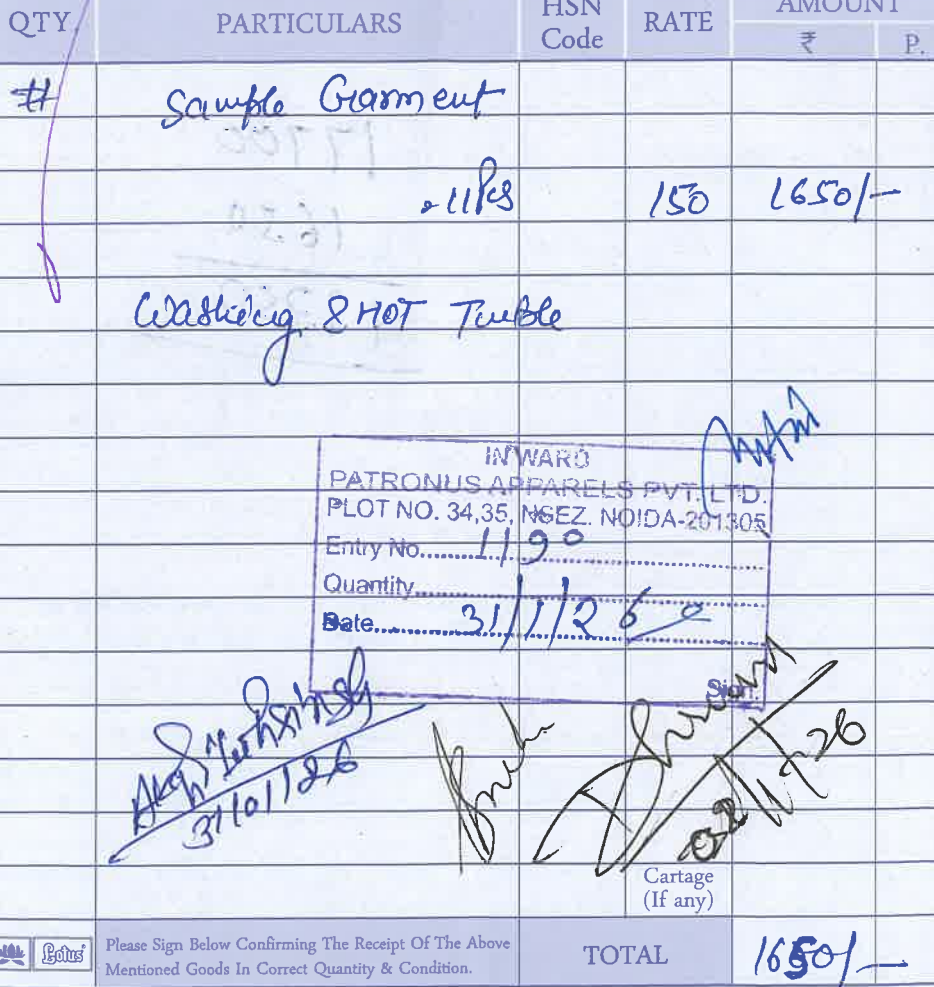 QTY PARTICULARS HSN Code RATE AMOUNT
₹ P.
# Sample Garment
11 Pcs 150 1650/-
Washing & HOT Tumble
INWARD
PATRONUS APPARELS PVT. LTD.
PLOT NO. 34,35, NSEZ. NOIDA-201305
Entry No. 1190
Quantity
Date 31/1/26
Sign
31/01/26
Cartage
(If any)
Lotus Please Sign Below Confirming The Receipt Of The Above
Mentioned Goods In Correct Quantity & Condition.
TOTAL 1650/-